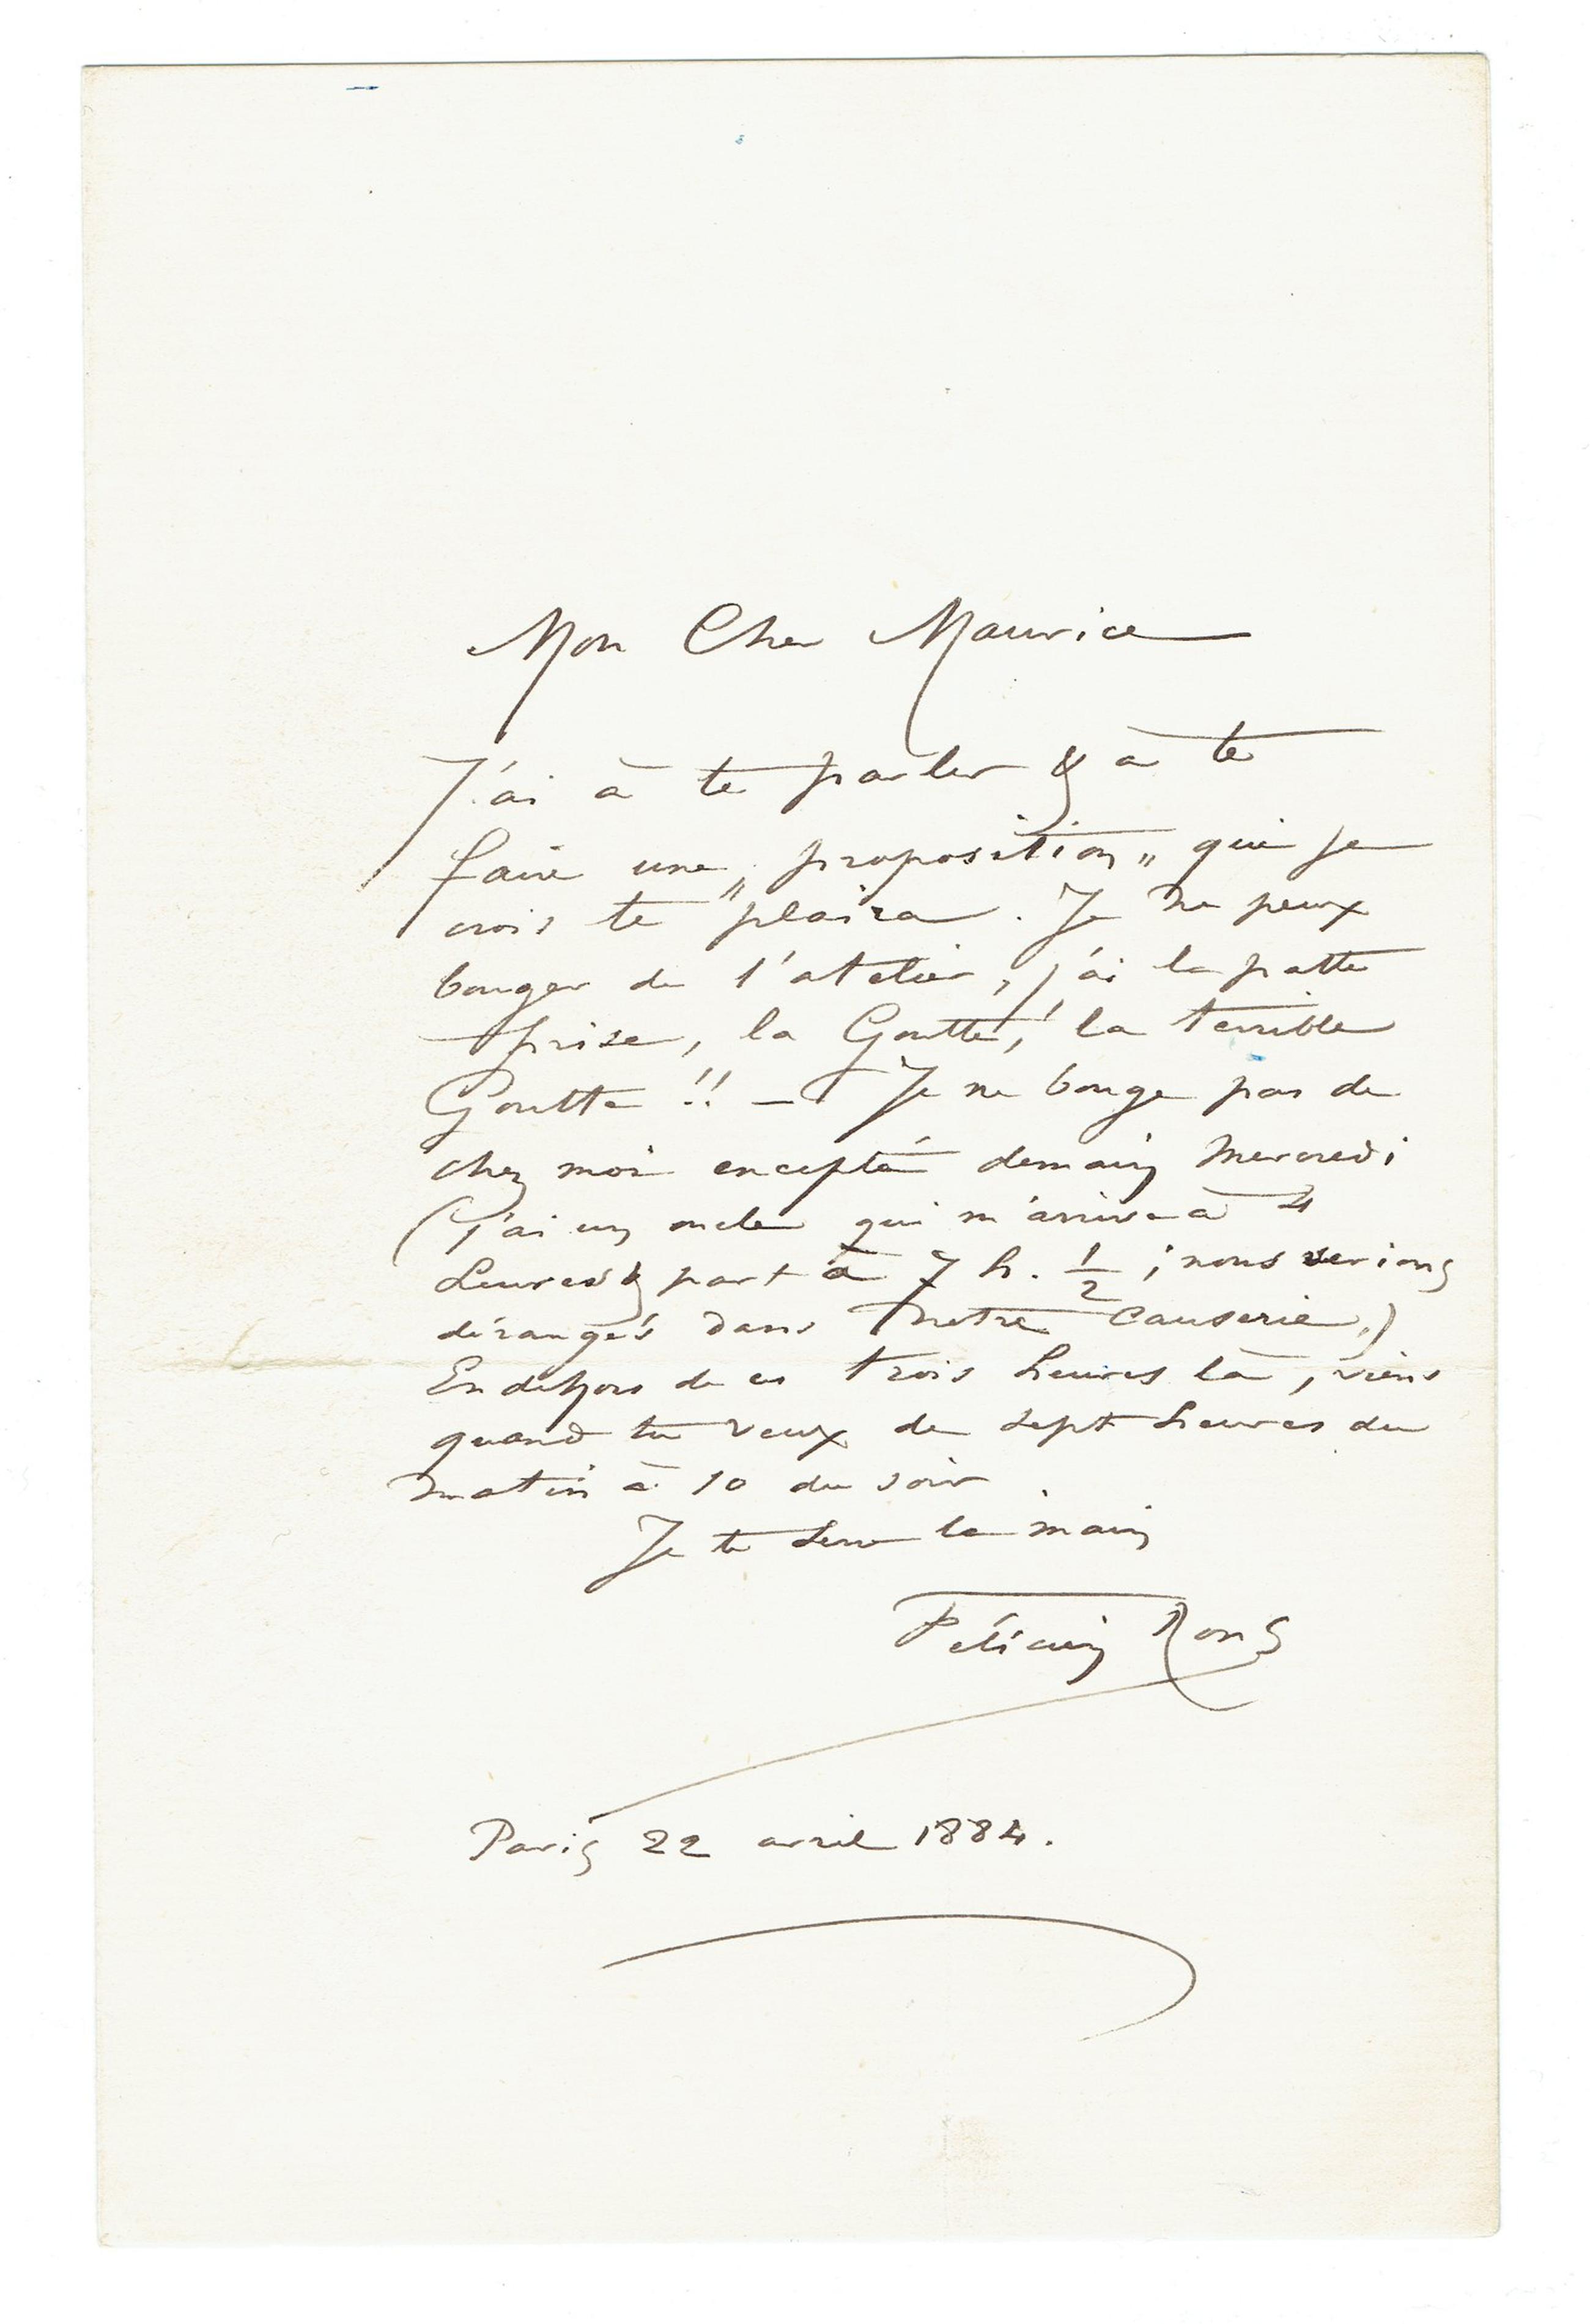 Mon Cher Maurice
J'ai à te parler & à te
faire une „proposition„ qui je
crois te plaira. Je ne peux
bouger de l'atelier, j'ai la patte
prise, la Goutte, la terrible
Goutte !! — Je ne bouge pas de
chez moi excepté demain Mercredi
(J'ai un oncle qui m'arrive à 4
heures & part à 7 h. 1/2 ; nous serions
dérangés dans notre causerie.)
En dehors de ces trois heures là, viens
quand tu veux de sept heures du
matin à 10 du soir
Je te serre la main
Félicien Rops
Paris 22 avril 1884.